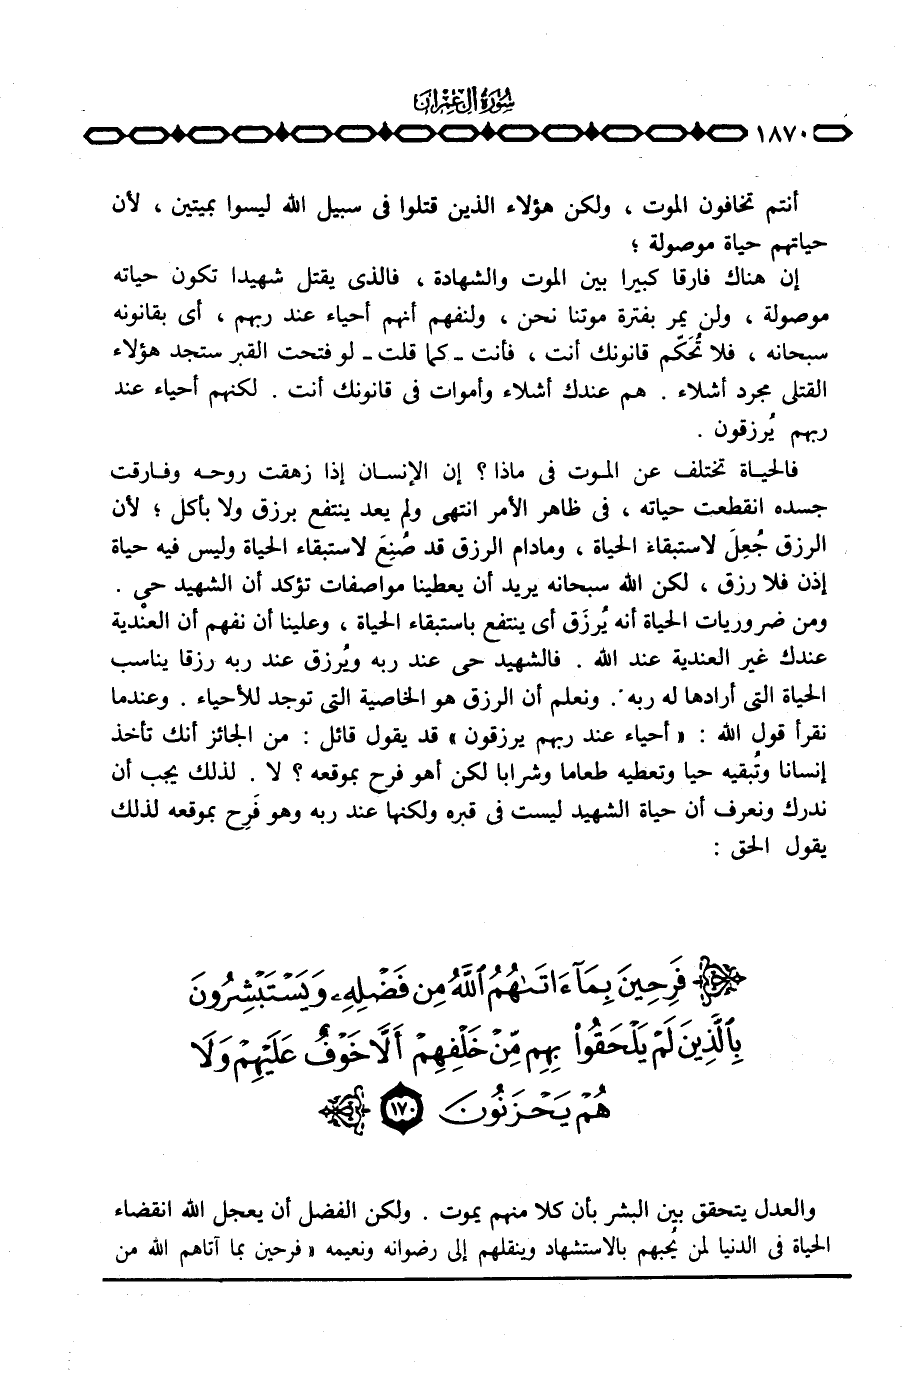 سورة آل عمران
١٨٧٠
أنتم تخافون الموت ، ولكن هؤلاء الذين قتلوا فى سبيل الله ليسوا بميتين ، لأن
حياتهم حياة موصولة ؛
إن هناك فارقا كبيرا بين الموت والشهادة ، فالذى يقتل شهيدا تكون حياته
موصولة ، ولن يمر بفترة موتنا نحن ، ولنفهم أنهم أحياء عند ربهم ، أى بقانونه
سبحانه ، فلا تُحَكّم قانونك أنت ، فأنت ـ كما قلت ـ لو فتحت القبر ستجد هؤلاء
القتلى مجرد أشلاء . هم عندك أشلاء وأموات فى قانونك أنت . لكنهم أحياء عند
ربهم يُرزقون .
فالحياة تختلف عن الموت فى ماذا ؟ إن الإنسان إذا زهقت روحه وفارقت
جسده انقطعت حياته ، فى ظاهر الأمر انتهى ولم يعد ينتفع برزق ولا بأكل ؛ لأن
الرزق جُعِلَ لاستبقاء الحياة ، ومادام الرزق قد صُنِعَ لاستبقاء الحياة وليس فيه حياة
إذن فلا رزق ، لكن الله سبحانه يريد أن يعطينا مواصفات تؤكد أن الشهيد حى .
ومن ضروريات الحياة أنه يُرزَق أى ينتفع باستبقاء الحياة ، وعلينا أن نفهم أن العنْدية
عندك غير العندية عند الله . فالشهيد حى عند ربه ويُرزق عند ربه رزقا يناسب
الحياة التى أرادها له ربه . ونعلم أن الرزق هو الخاصية التى توجد للأحياء . وعندما
نقرأ قول الله : « أحياء عند ربهم يرزقون » قد يقول قائل : من الجائز أنك تأخذ
إنسانا وتُبقيه حيا وتعطيه طعاما وشرابا لكن أهو فرح بموقعه ؟ لا . لذلك يجب أن
ندرك ونعرف أن حياة الشهيد ليست فى قبره ولكنها عند ربه وهو فَرِح بموقعه لذلك
يقول الحق :
فَرِحِينَ بِمَآ ءَاتَىٰهُمُ ٱللَّهُ مِن فَضْلِهِۦ وَيَسْتَبْشِرُونَ
بِٱلَّذِينَ لَمْ يَلْحَقُوا۟ بِهِم مِّنْ خَلْفِهِمْ أَلَّا خَوْفٌ عَلَيْهِمْ وَلَا
هُمْ يَحْزَنُونَ ١٧٠
والعدل يتحقق بين البشر بأن كلا منهم يموت . ولكن الفضل أن يعجل الله انقضاء
الحياة فى الدنيا لمن يُحبهم بالاستشهاد وينقلهم إلى رضوانه ونعيمه « فرحين بما آتاهم الله من